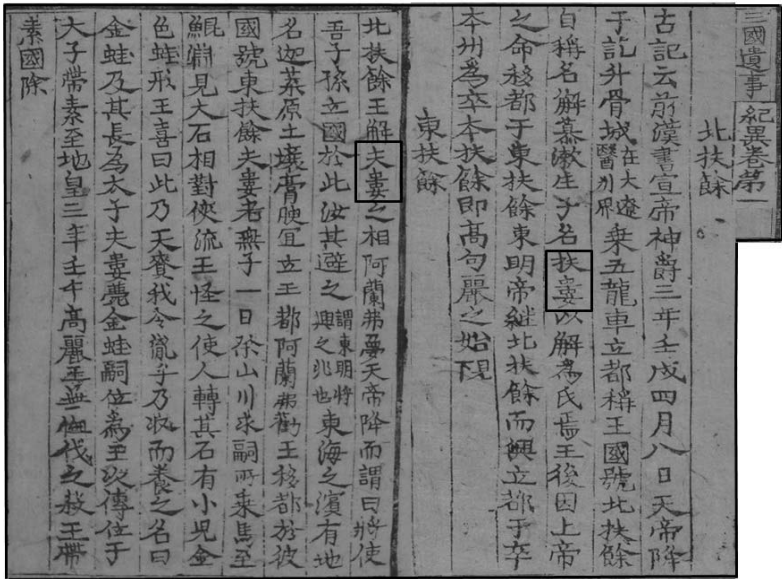 三國遺事 紀異卷第一
北扶餘
古記云前漢書宣帝神爵三年壬戌四月八日天帝降
于訖升骨城在大遼醫州界乗五龍車立都稱王國號北扶餘
自稱名解慕漱生子名扶婁以解爲氏焉王後因上帝
之命移都于東扶餘東明帝継北扶餘而興立都于卒
本州爲卒本扶餘即髙句麗之始見
東扶餘
北扶餘王解夫婁之相阿蘭弗夢天帝降而謂曰將使
吾子孫立國於此汝其避之謂東明將興之兆也東海之濱有地
名迦葉原土壤膏腴宜立王都阿蘭弗勸王移都於彼
國號東扶餘夫婁老無子一日祭山川求嗣所乗馬至
鯤淵見大石相對俠流王怪之使人轉其石有小児金
色蛙形王喜曰此乃天賚我令胤乎乃收而養之名曰
金蛙及其長爲太子夫婁薨金蛙嗣位爲王次傳位于
大子帶素至地皇三年壬午高麗王無恤伐之殺王帶
素國除